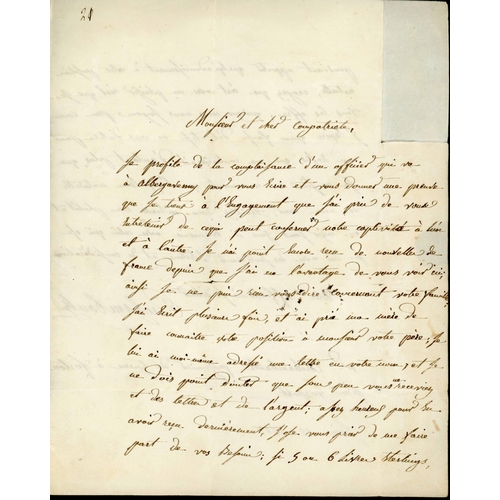 21
Monsieur et cher compatriote,
Je profite de la complaisance d'un officier qui va
à Abergavenny pour vous Ecrire et vous donner une preuve
que je tiens à l'Engagement que j'ai pris de vous
Entretenir de ce qui peut concerner notre captivité à l'un
et à l'autre. Je n'ai point Encore reçu de nouvelles de
france depuis que j'ai eu l'avantage de vous voir ici,
ainsi je ne puis rien vous dire concernant votre famille
j'ai Ecrit plusieurs fois, et j'ai prié ma mère de
faire connaitre votre position à monsieur votre père; je
lui ai moi-même adressé une lettre en votre nom; et je
ne dois point douter que sous peu vous ne receviez
et des lettres et de l'argent; assez heureux pour En
avoir reçu dernièrement, j'ose vous prier de me faire
part de vos Besoins; si 5 ou 6 Livres Sterlings,